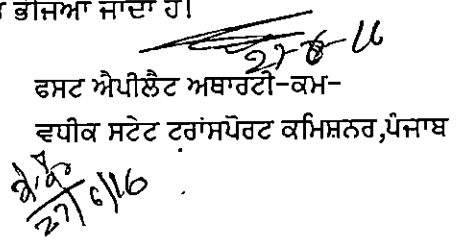 ਭੇਜਿਆ ਜਾਂਦਾ ਹੈ।
27-6-16
ਫਸਟ ਐਪੀਲੈਟ ਅਥਾਰਟੀ-ਕਮ-
ਵਧੀਕ ਸਟੇਟ ਟਰਾਂਸਪੋਰਟ ਕਮਿਸ਼ਨਰ,ਪੰਜਾਬ
27/6/16